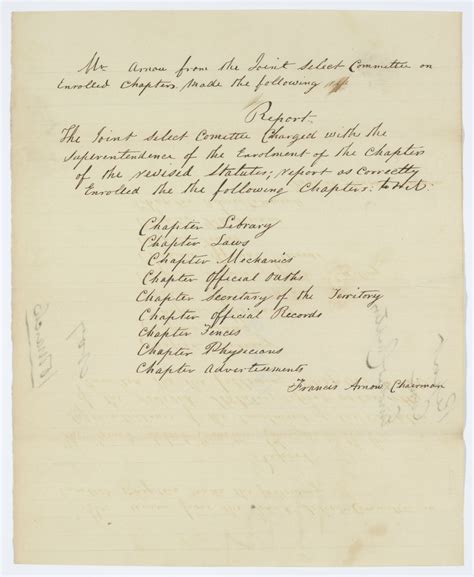 Mr Arnow from the Joint Select Committee on
Enrolled Chapters made the following
Report
The Joint Select Comittee Charged with the
Superentendence of the Enrolment of the Chapters
of the revised Statutes, report as Correctly
Enrolled the the following Chapters: to wit:
Chapter Library
Chapter Laws
Chapter Mechanics
Chapter Official Oaths
Chapter Secretary of the Territory
Chapter Official Records
Chapter Fences
Chapter Physicians
Chapter Advertisements
Francis Arnow Chairman